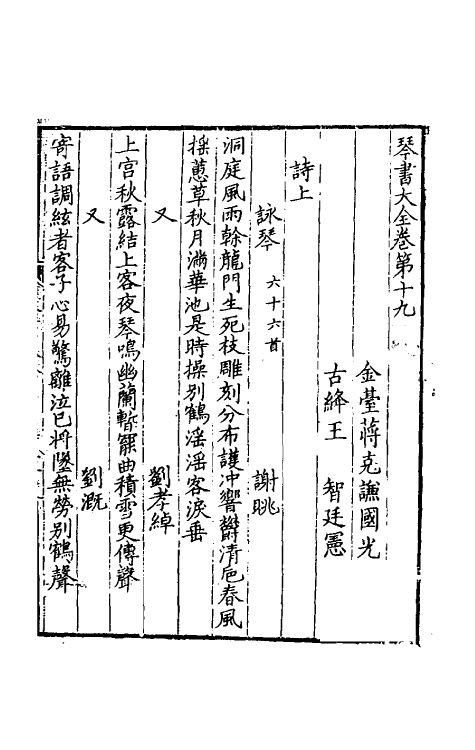 琴書大全卷第十九
金臺蔣克謙國光
古絳王　智廷憲
詩上
詠琴　六十六首　謝眺
洞庭風雨榦龍門生死枝雕刻分布護冲響欝清卮春風
揺蕙草秋月滿華池是時操別鶴淫淫客淚垂
又　劉孝綽
上宫秋露結上客夜琴鳴幽蘭暫罷曲積雪更傳聲
又　劉溉
寄語調絃者客子心易驚離泣已將墜無勞別鶴聲